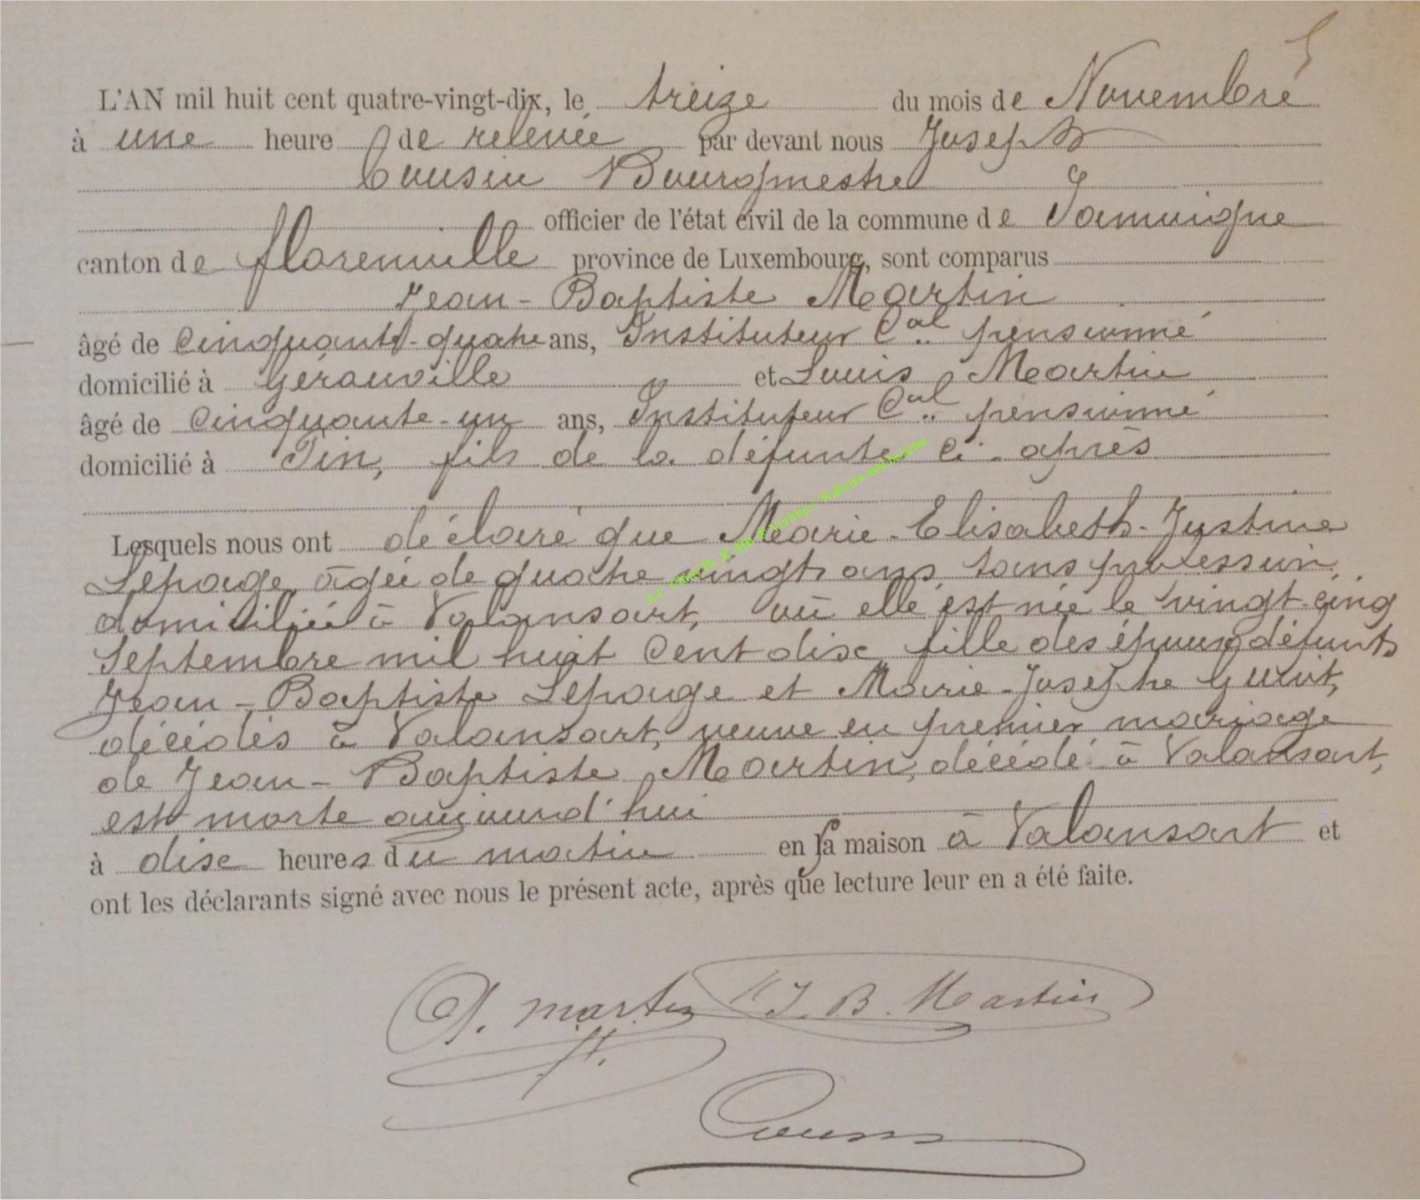 L'AN mil huit cent quatre-vingt-dix, le treize du mois de Novembre
à une heure de relevée par devant nous Joseph
Cousin Bourgmestre
officier de l'état civil de la commune de Jamoigne
canton de florenville province de Luxembourg, sont comparus
Jean-Baptiste Martin
âgé de cinquante-quatre ans, Instituteur Cal pensionné
domicilié à Gérouville et Louis Martin
âgé de cinquante-un ans, Instituteur Cal pensionné
domicilié à Pin, fils de la défunte ci-après
Lesquels nous ont déclaré que Marie-Elisabeth-Justine
Lepage, âgée de quatre vingts ans, sans profession,
domiciliée à Valansart, où elle est née le vingt-cinq
Septembre mil huit cent dix, fille des époux défunts
Jean-Baptiste Lepage et Marie-Josephe
décédés à Valansart, veuve en premier mariage
de Jean-Baptiste Martin, décédé à Valansart,
est morte aujourd'hui
à dix heures du matin en sa maison à Valansart et
ont les déclarants signé avec nous le présent acte, après que lecture leur en a été faite.
Martin J. B. Martin
Cousin